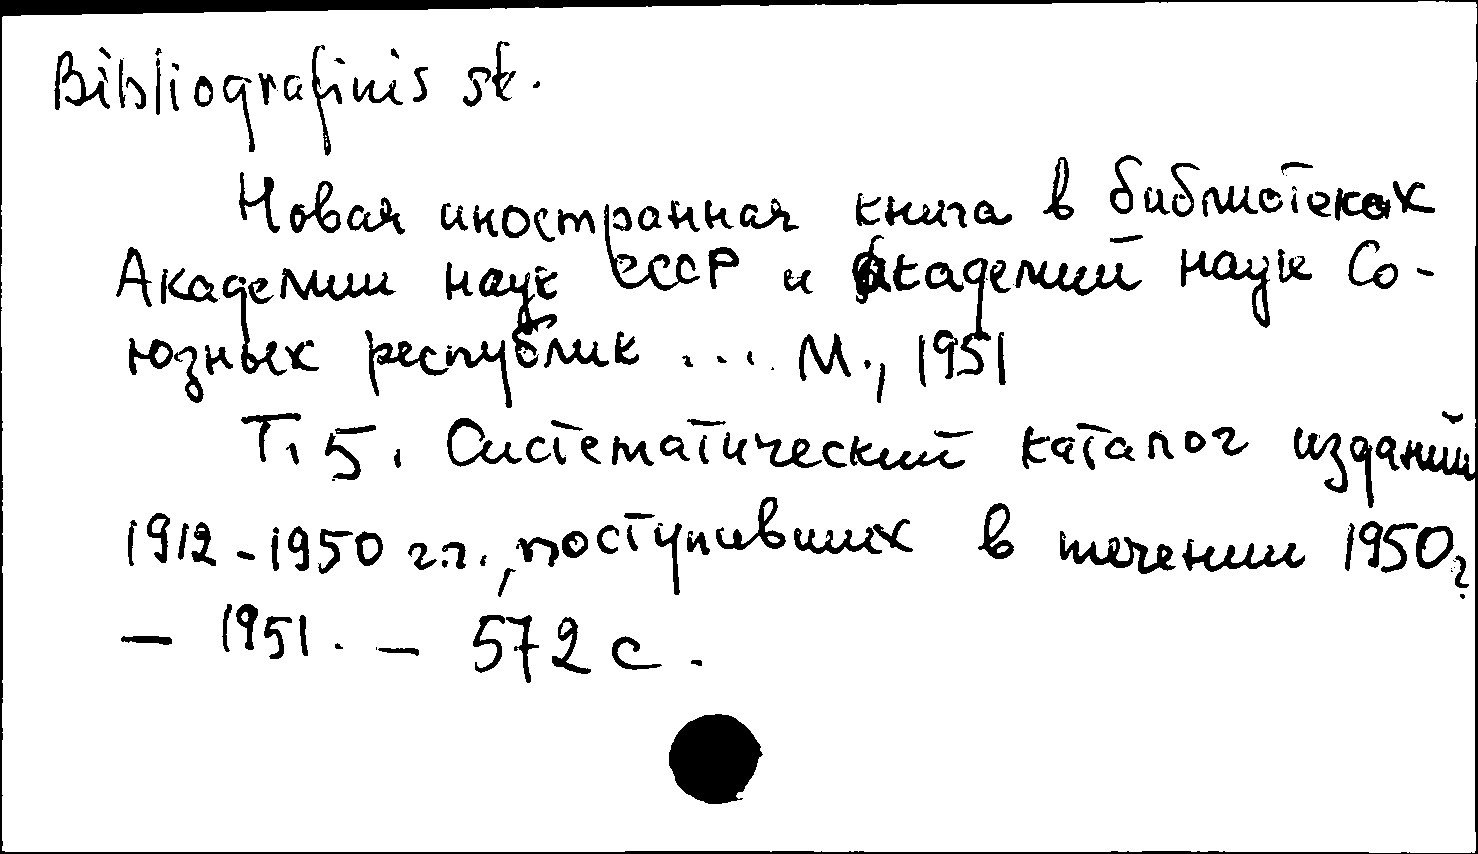 Bibliografinis sk.
Новая иностранная книга в библиотеках
Академии наук СССР и академий наук Со-
юзных республик ... М., 1951
Т. 5. Систематический каталог изданий
1912-1950 г.г., поступивших в течении 1950г.
— 1951. — 572 с.